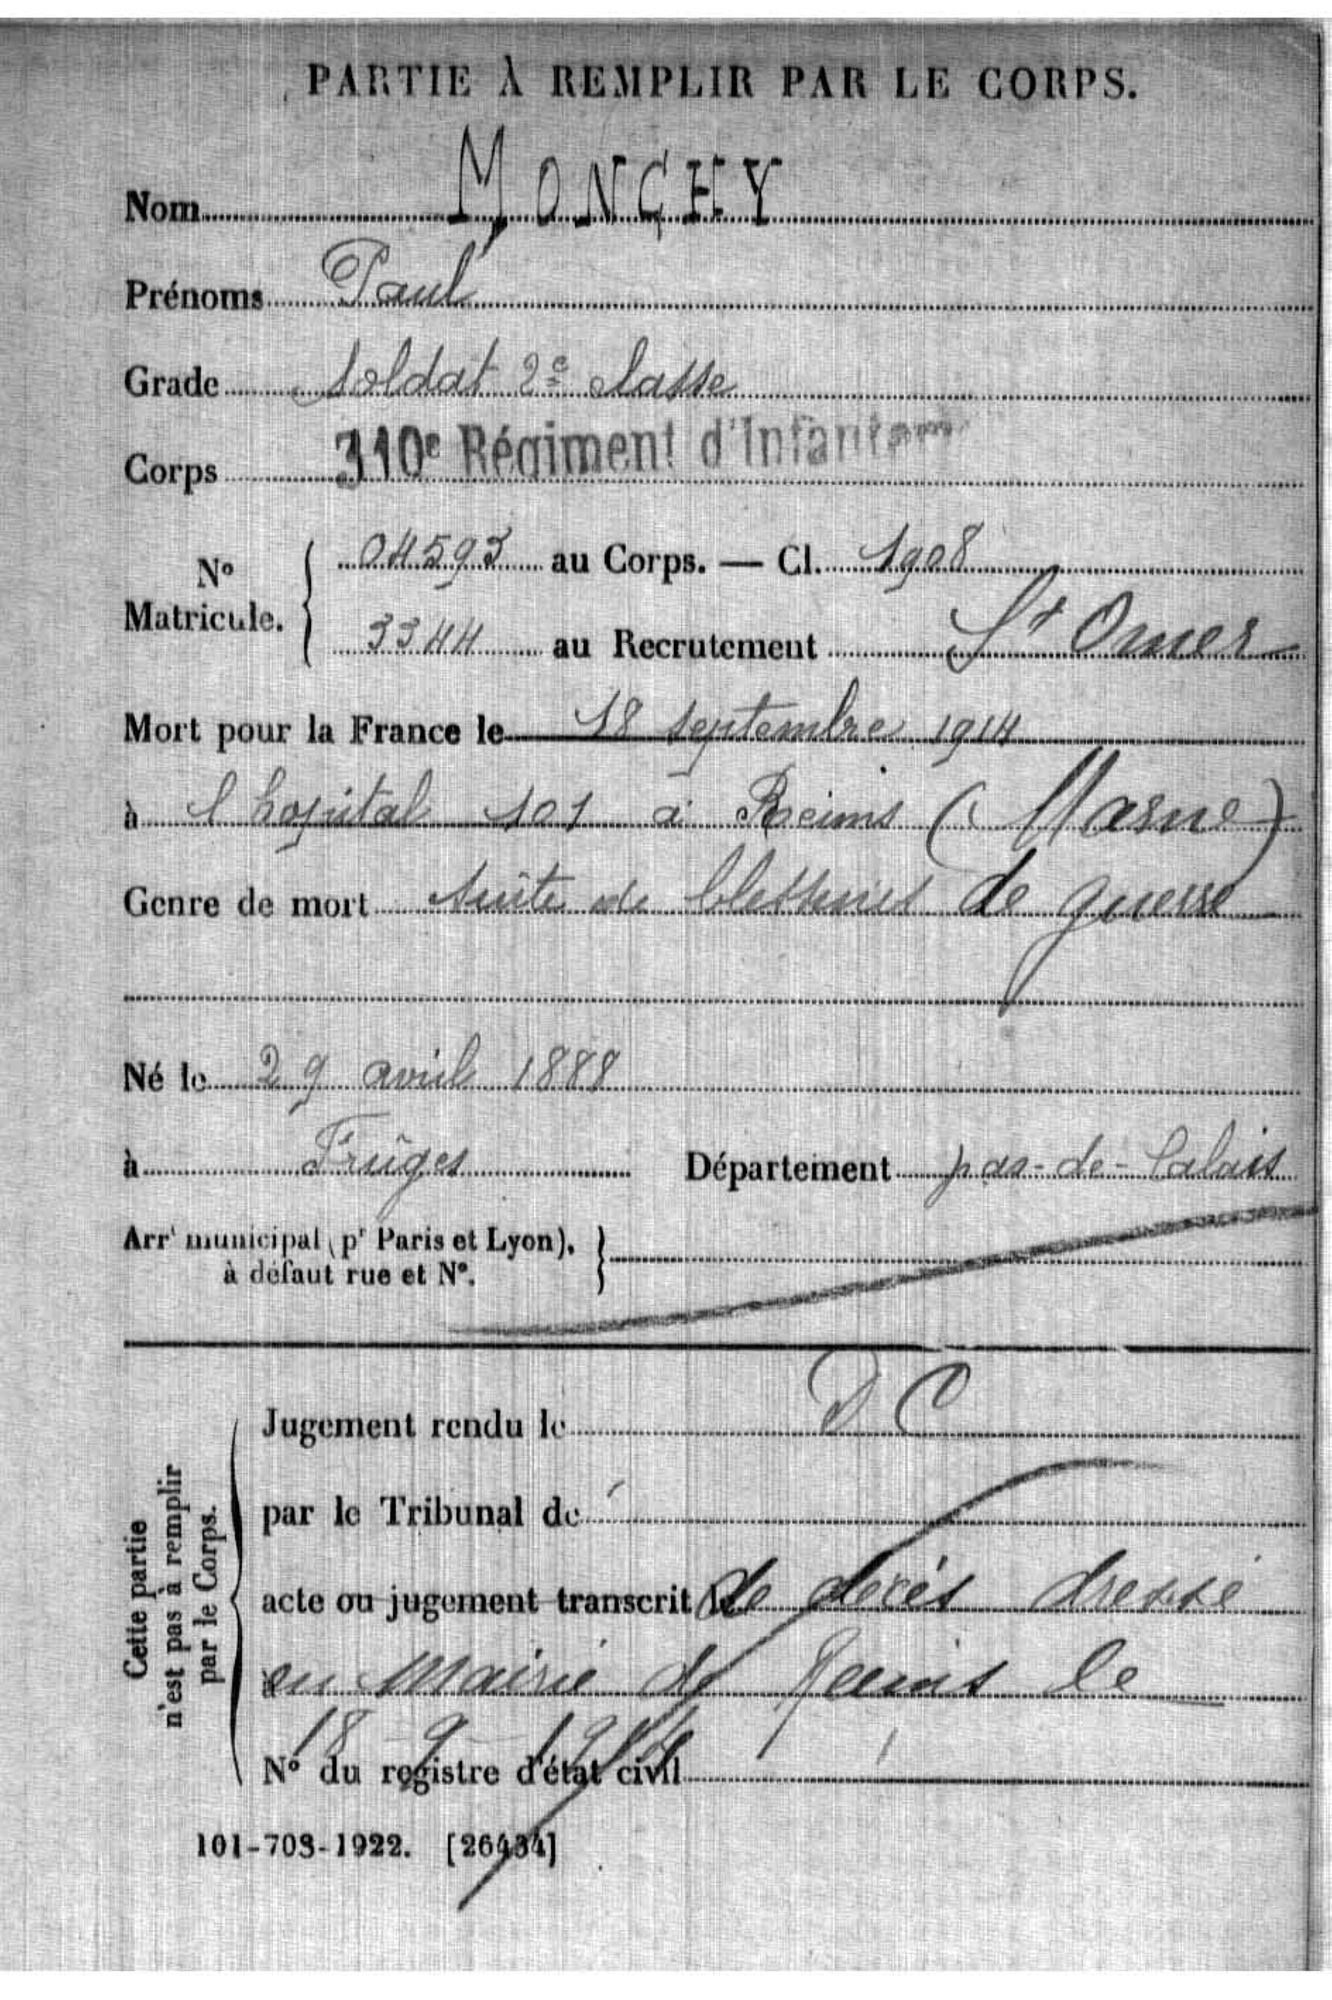 PARTIE À REMPLIR PAR LE CORPS.
Nom MONCHY
Prénoms Paul
Grade Soldat 2e classe
Corps 310e Régiment d'Infanterie
No Matricule. { 04593 au Corps. — Cl. 1908
3344 au Recrutement St Omer
Mort pour la France le 18 septembre 1914
à l'hopital 101 à Reims (Marne)
Genre de mort suite de blessures de guerre
Né le 29 avril 1888
à Fruges Département pas-de-Calais
Arrt municipal (pr Paris et Lyon),
à défaut rue et No.
Cette partie
n'est pas à remplir
par le Corps.
Jugement rendu le DC
par le Tribunal de
acte ou jugement transcrit le de décès dressé
à en Mairie de Reims le
18 9 1914
No du registre d'état civil
101-708-1922. [26434]